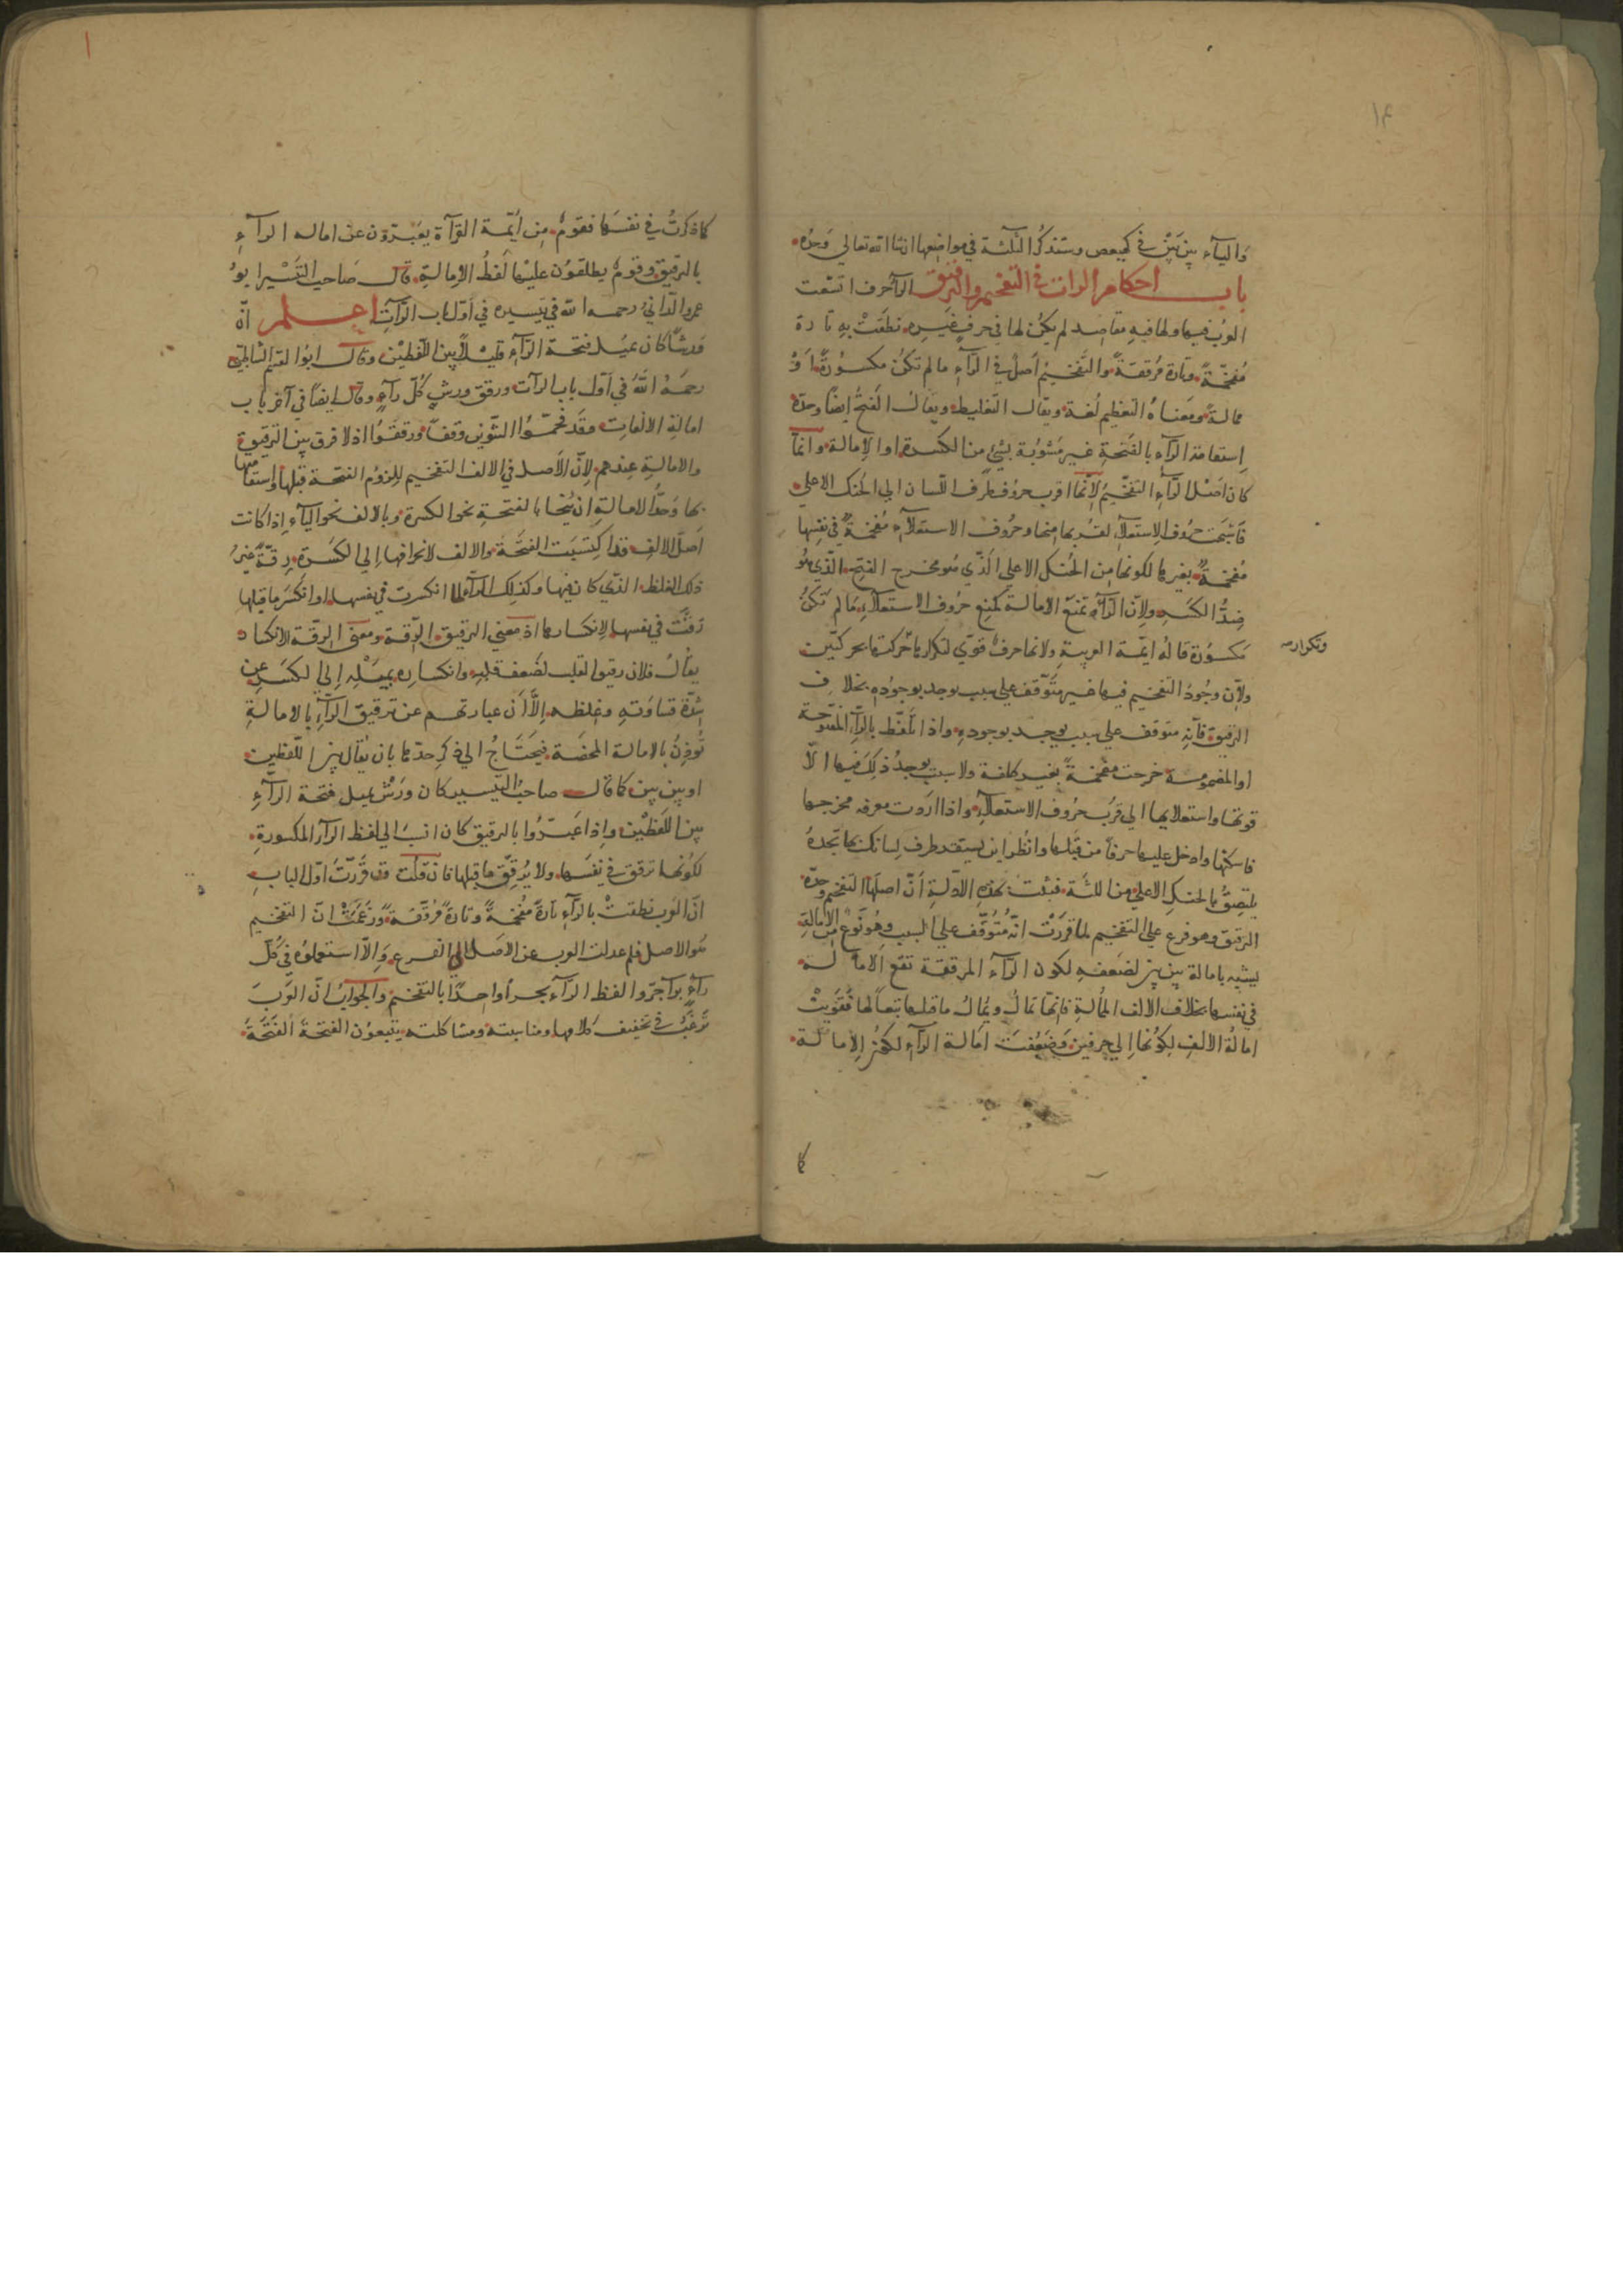 ١٤
واليآء بين بين في كهيعص وستذكر الثلثة في مواضعها ان شا الله تعالى وحده
باب احكام الرات في التفخيم والترقيق الرآء حرف اتسعت
العرب فيها ولها فيه مقاصد لم يكن لها في حرف غيره نطقت به تارة
مفخمة وتارة مرققة والتفخيم اصل في الرآء ما لم تكن مكسورة او
ممالة ومعناه التعظيم لغة ويقال التغليط ويقال الفتح ايضا وحده
استقامة الرآء بالفتحة غير مشوبة بشئ من الكسرة او الامالة وانما
كان اصل الرآء التفخيم لانها اقرب حروف طرف اللسان الى الحنك الاعلى
فاشبهت حروف الاستعلآء لقربها منها وحروف الاستعلآء مفخمة في نفسها
مفخمة بغيرها لكونها من الحنك الاعلى الذي هو مخرج الفتح الذي هو
ضد الكسر ولان الرآء تمنع الامالة كمنع حروف الاستعلآء ما لم تكن
مكسورة قاله ايمة العربية ولانها حرف قوي لتكرارها حركتها بحركتين
وتكراره
ولان وجود التفخيم فيها غير متوقف على سبب يوجد بوجوده بخلاف
الترقيق فانه متوقف على سبب يوجد بوجوده واذا تلفظ بالرآء المفتوحة
او المضمومة خرجت مفخمة بغير كلفة ولا سبب يوجد ذلك فيها الا
قوتها واستعلايها الى قرب حروف الاستعلآء واذا اردت معرفة مخرجها
فاسكنها وادخل عليها حرفا من قبلها وانظر اين يستقر طرف لسانك بها تجده
يلتصق بالحنك الاعلى من اللثة فثبت بهذه الادلة ان اصلها التفخيم وحده
الترقيق وهو فرع على التفخيم لما قررت انه متوقف على السبب وهو نوع من الامالة
يشبه بامالة بين بين لضعفه لكون الرآء المرققة تقع الامالة
في نفسها بخلاف الالف الممالة فانها تمال ويمال ما قبلها تبعا لها فقويت
امالة الالف لكونها الى حرفين وضعفت امالة الرآء لكون الامالة
كما
كما ذكرت في نفسها فقوم من ايمة القرآة يعبرون عن امالة الرآء
بالترقيق وقوم يطلقون عليها لفظ الامالة قال صاحب التيسير ابو
عمرو الداني رحمه الله في تيسيره في اول باب الرآت اعلم ان
ورشا كان يميل فتحة الرآء قليلا بين اللفظين وقال ابو القسم الشاطبي
رحمه الله في اول باب الرآت ورقق ورش كل رآء وقال ايضا في آخر باب
امالة الالفات وقد فخموا التنوين وقفا ورققوا اذ لا فرق بين الترقيق
والامالة عندهم لان الاصل في الالف التفخيم للزوم الفتحة قبلها واستقامتها
بها وحد الامالة ان ينحا بالفتحة نحو الكسرة وبالالف نحو اليآء اذا كانت
اصل الالف فقد اكتسبت الفتحة والالف لانحرافها الى الكسرة رقة غير
ذلك الغلظ الذي كان فيها وكذلك الرآء لما انكسرت في نفسها او انكسر ما قبلها
رقت في نفسها لانكسارها اذ معنى الترقيق الرقة ومعنى الرقة الانكسار
يقال فلان رقيق القلب لضعف قلبه وانكساره بميله الى الكسر عن
شدة قساوته وغلظه الا ان عبارتهم عن ترقيق الرآء بالامالة
توذن بالامالة المحضة فيحتاج الى ذكر حدها بان يقال بين اللفظين
او بين بين كما قال صاحب التيسير كان ورش يميل فتحة الرآء
بين اللفظين واذا عبروا بالترقيق كان انسب الى لفظ الرآء المكسورة
لكونها ترقق في نفسها ولا يرقق ما قبلها فان قلت قد قررت اول الباب
ان العرب نطقت بالرآء تارة مفخمة وتارة مرققة وزعمت ان التفخيم
هو الاصل فلم عدلت العرب عن الاصل الى الفرع والا استعملوه في كل
رآء برآء جروا لفظ الرآء مجرا واحدا بالتفخيم والجواب ان العرب
ترغب في تخفيف كلامها ومناسبته ومشاكلته يتبعون الفتحة الفتحة